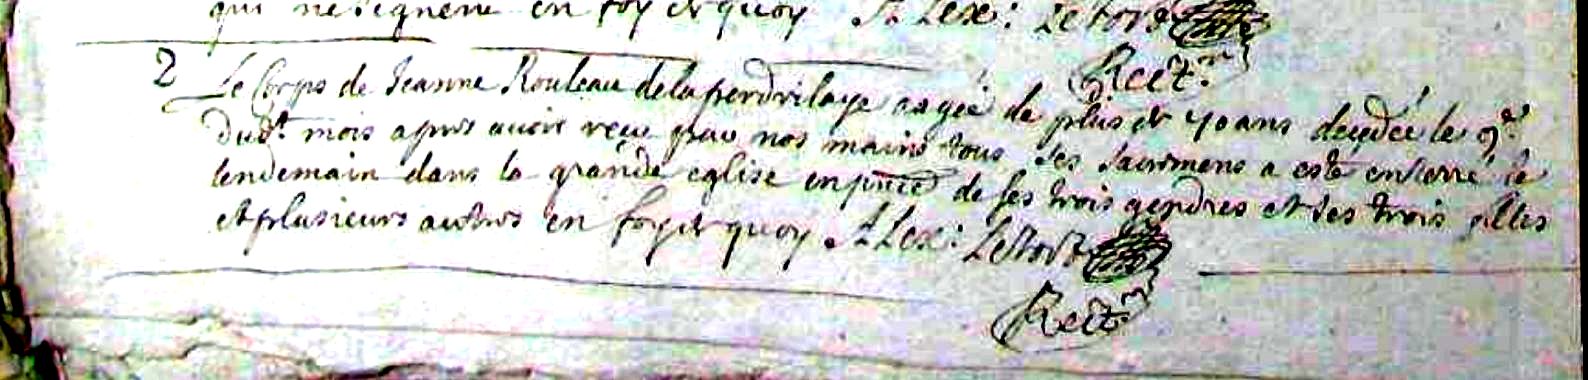 qui ne signent en foy de quoy Alex: Letort
Rect.r
2 Le Corps de Jeanne Rouleau de la perdrilaye aagée de plus de 40 ans decedée le 9e
dudt mois apres avoir reçu par nos mains tous ses sacremens a esté enterré le
lendemain dans la grande eglise en pnce de ses trois gendres et ses trois filles
et plusieurs autres en foy de quoy Alex: Letort
Rect.r